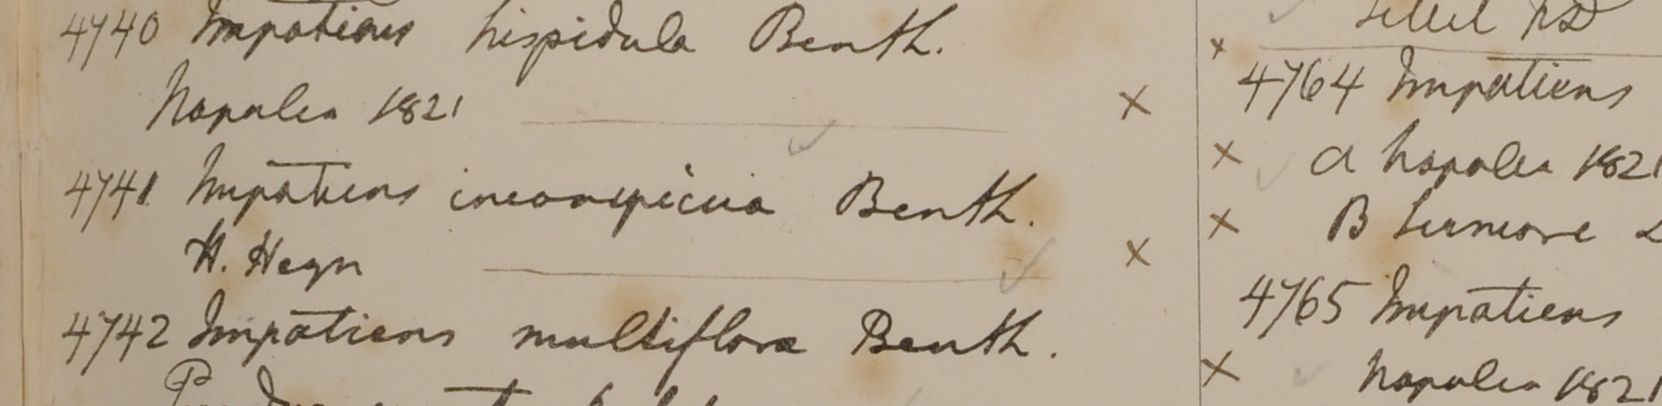 4740 Impatiens hispidula Benth.
Napalea 1821
4741 Impatiens inconspicua Benth.
H. Heyn
4742 Impatiens multiflora Benth.
4764 Impatiens
a Napalea 1821
B
4765 Impatiens
Napalea 1821